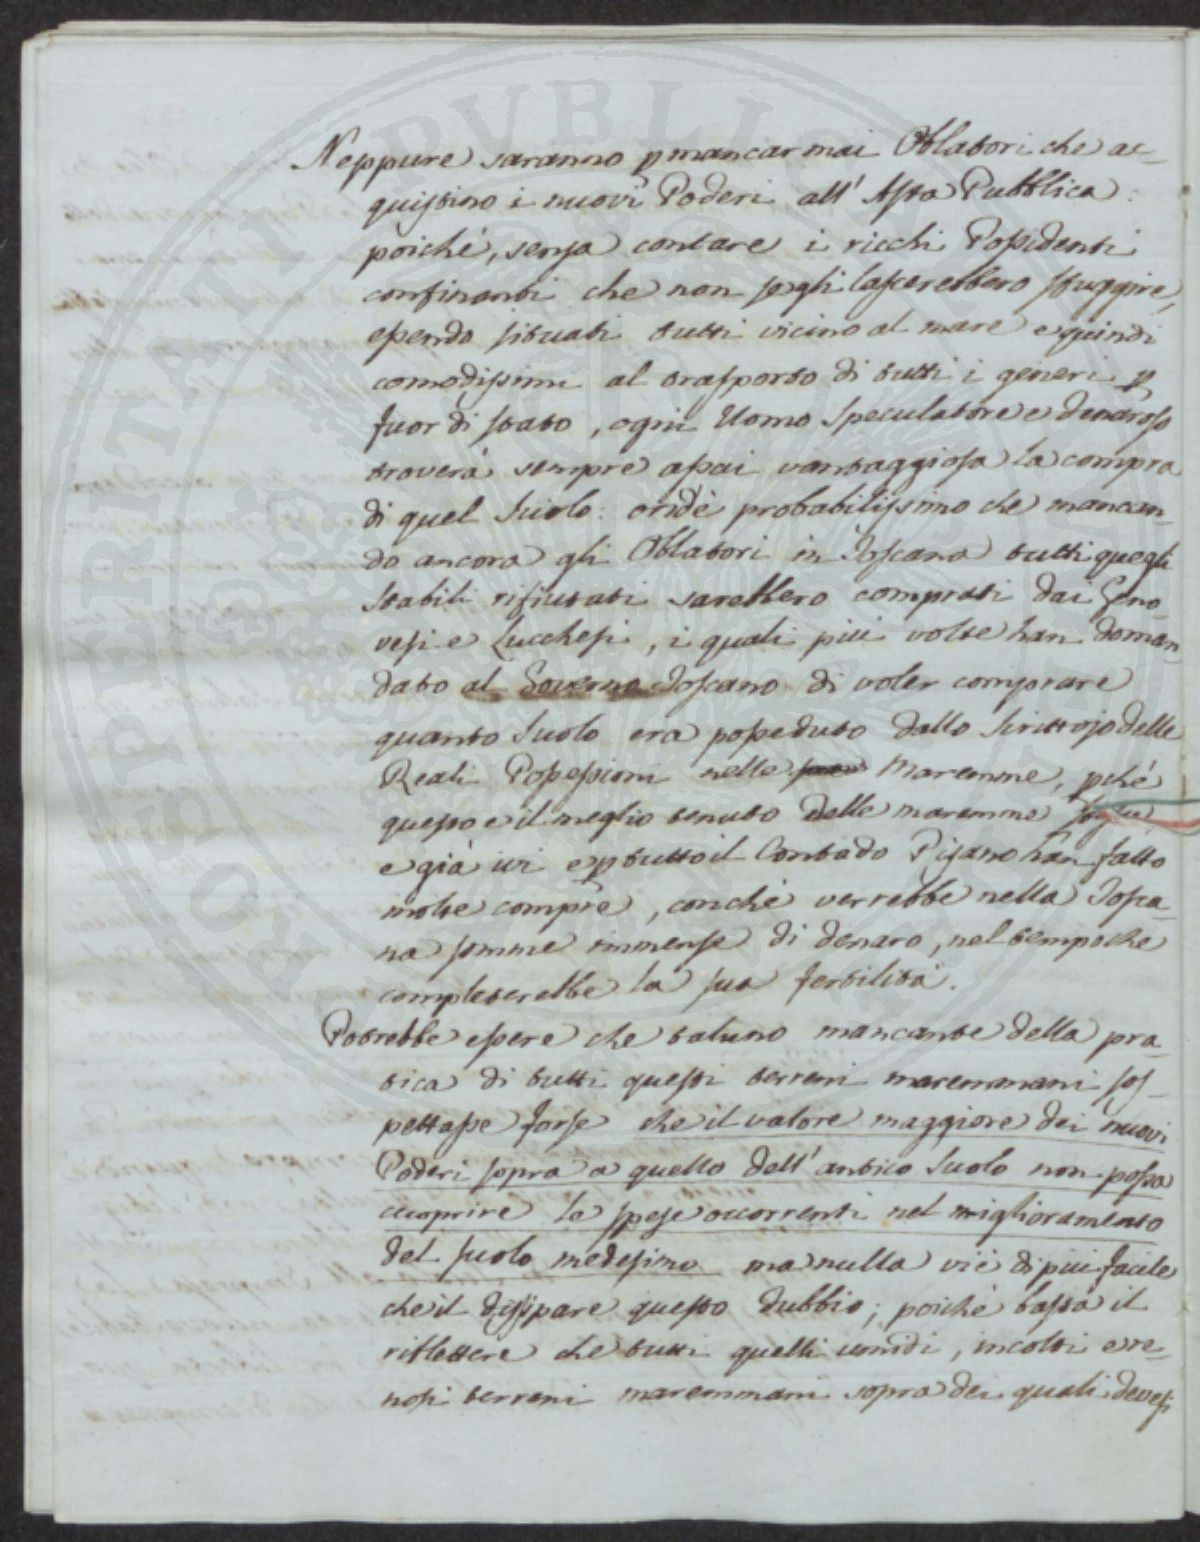 Neppure saranno p mancar mai Oblatori che ac-
quistino i nuovi Poderi all' Asta Pubblica:
poichè, senza contare i ricchi Possidenti
confinanti che non se gli lascerebbero sfuggire,
essendo situati tutti vicino al mare e quindi
comodissimi al trasporto di tutti i generi p
fuor di stato, ogni Uomo Speculatore e denaroso
troverà sempre assai vantaggiosa la compra
di quel Suolo: ond'è probabilissimo che mancan-
do ancora gli Oblatori in Toscana tutti quegli
Stabili rifiutati sarebbero comprati dai Geno-
vesi e Lucchesi, i quali più volte han doman-
dato al Governo Toscano di voler comprare
quanto Suolo era posseduto dallo Scrittojo delle
Reali Possessioni nelle Maremme, pchè
questo è il meglio tenuto delle maremme
e già ivi e p tutto il Contado Pisano han fatto
molte compre, con chè verrebbe nella Tosca-
na somme immense di denaro, nel tempo che
completerebbe la sua fertilità.
Potrebbe essere che taluno mancante della pra-
tica di tutti questi terreni maremmani sos-
pettasse forse che il valore maggiore dei nuovi
Poderi sopra a quello dell' antico Suolo non possa
cuoprire le spese occorrenti nel miglioramento
del suolo medesimo ma nulla vi è di più facile
che il dissipare questo dubbio; poichè basta il
riflettere che tutti quelli umidi, incolti e re-
nosi terreni maremmani sopra dei quali devesi
PROSPERITATI PVBLICAE